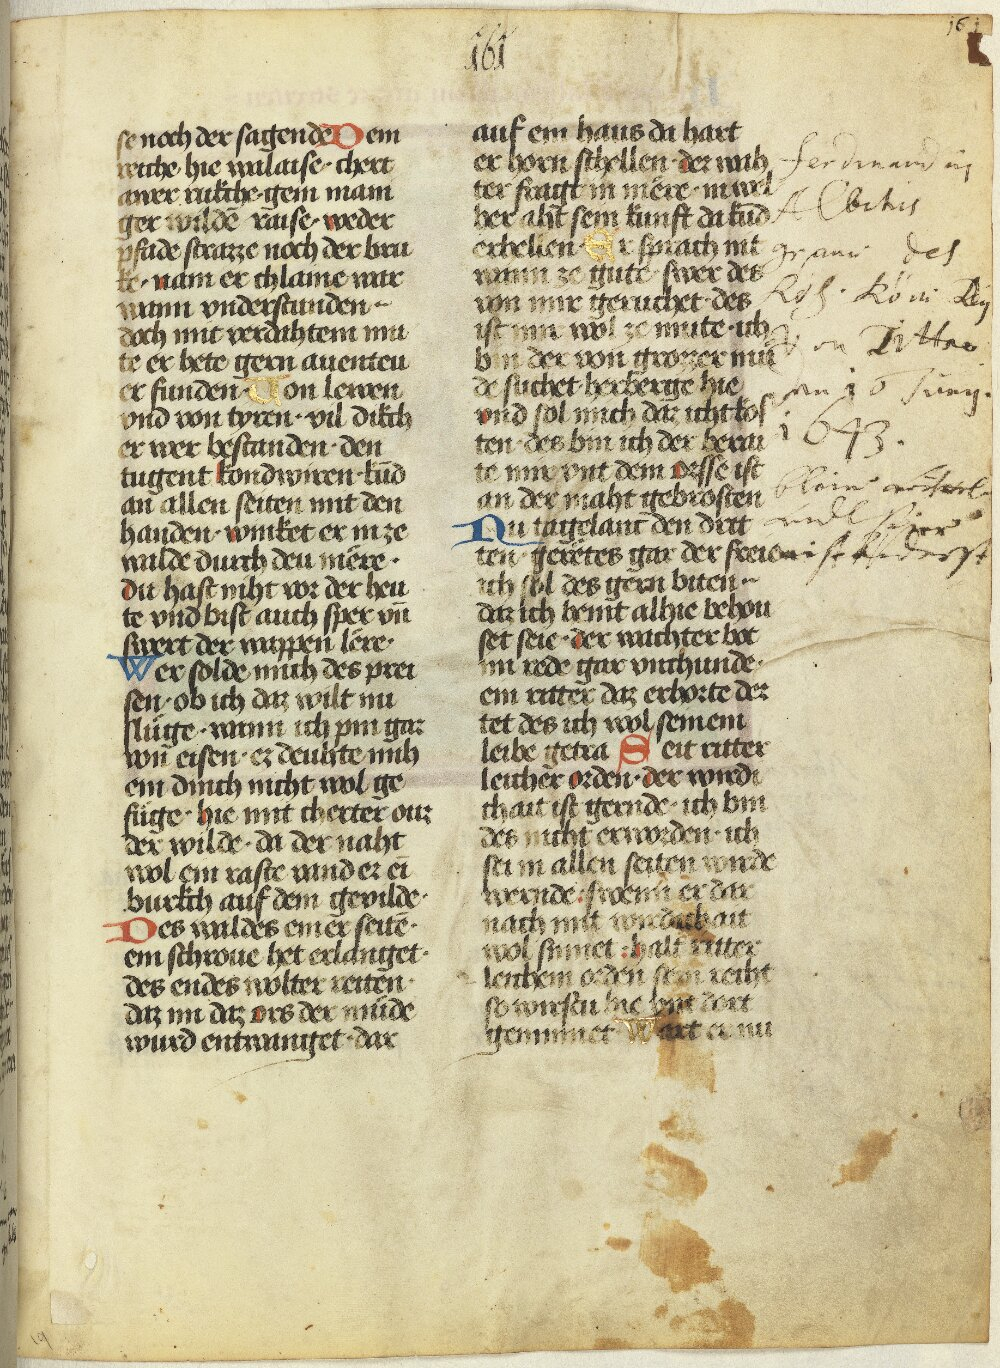 161
se noch der sagende Dem
reiche hie walaise · chert
awer rukche · gem mam
ger wilde raise · weder
pfade strazze noch der bru
ke · nam er chlaine war
wann vnderstunden ~
doch mit verdahtem mu
te er hete gern auenteu
er funden · Von lewen
vnd von tyren · vil dikch
er wer bestanden · den
tugent kondwiren · kūd
an allen seiten mit den
handen · winket er in ze
wilde durch deu mēre ·
du hast niht vor der heu
te vnd bist auch sper vn̄
swert der wappen lēre ·
Wer solde mich des prei
sen · ob ich daz wilt nu
slüge · wann ich pin gar
wn̄ eisen · ez deuhte mih
ein dinch nicht wol ge
füge · hie mit cherter ouz
der wilde · da der naht
wol ein raste vand er ei
burkch auf dem gevilde ·
Des waldes einer seitē ·
ein schroue het erlanget ·
des endes wolter reiten ·
daz im daz ors der müde
wurd entwanget · dar
auf ein haus da hart
er horn schellen · der wah
ter fragt in mēre · in wel
her aht sein kunft da kūd
erhellen · Er sprach nit
wann ze gute · swer des
von mir geruchet · des
ist mir wol ze mute · ich
bin der von grozzer mü
de suchet herberge hie
vnd sol mich daz icht kos
ten · des bin ich der berai
te mir vnt dem orsse ist
an der maht gebrosten
Nu tagelanc den drit
ten · gerētes gar der freie
ich sol des gern biten ~
daz ich heint alhie behou
set seie · der wachter bot
im rede gar vnchunde ·
ein ritter daz erhorte der
tet des ich wol seinem
leibe getra Seit ritter
leicher orden · der wirdi
chait ist gernde · ich bin
des nicht erworden · ich
sei in allen seiten wirde
wernde · swenn er dar
nach mit wirdichait
wol sinnet · halt ritter
leichem orden sein reiht
so wirstu hie vnt dort
geminnet Wart er nu
Ferdinandus
Albertus
graui des
Röh · Köni
von
den 16 Junij ·
1643 ·
19